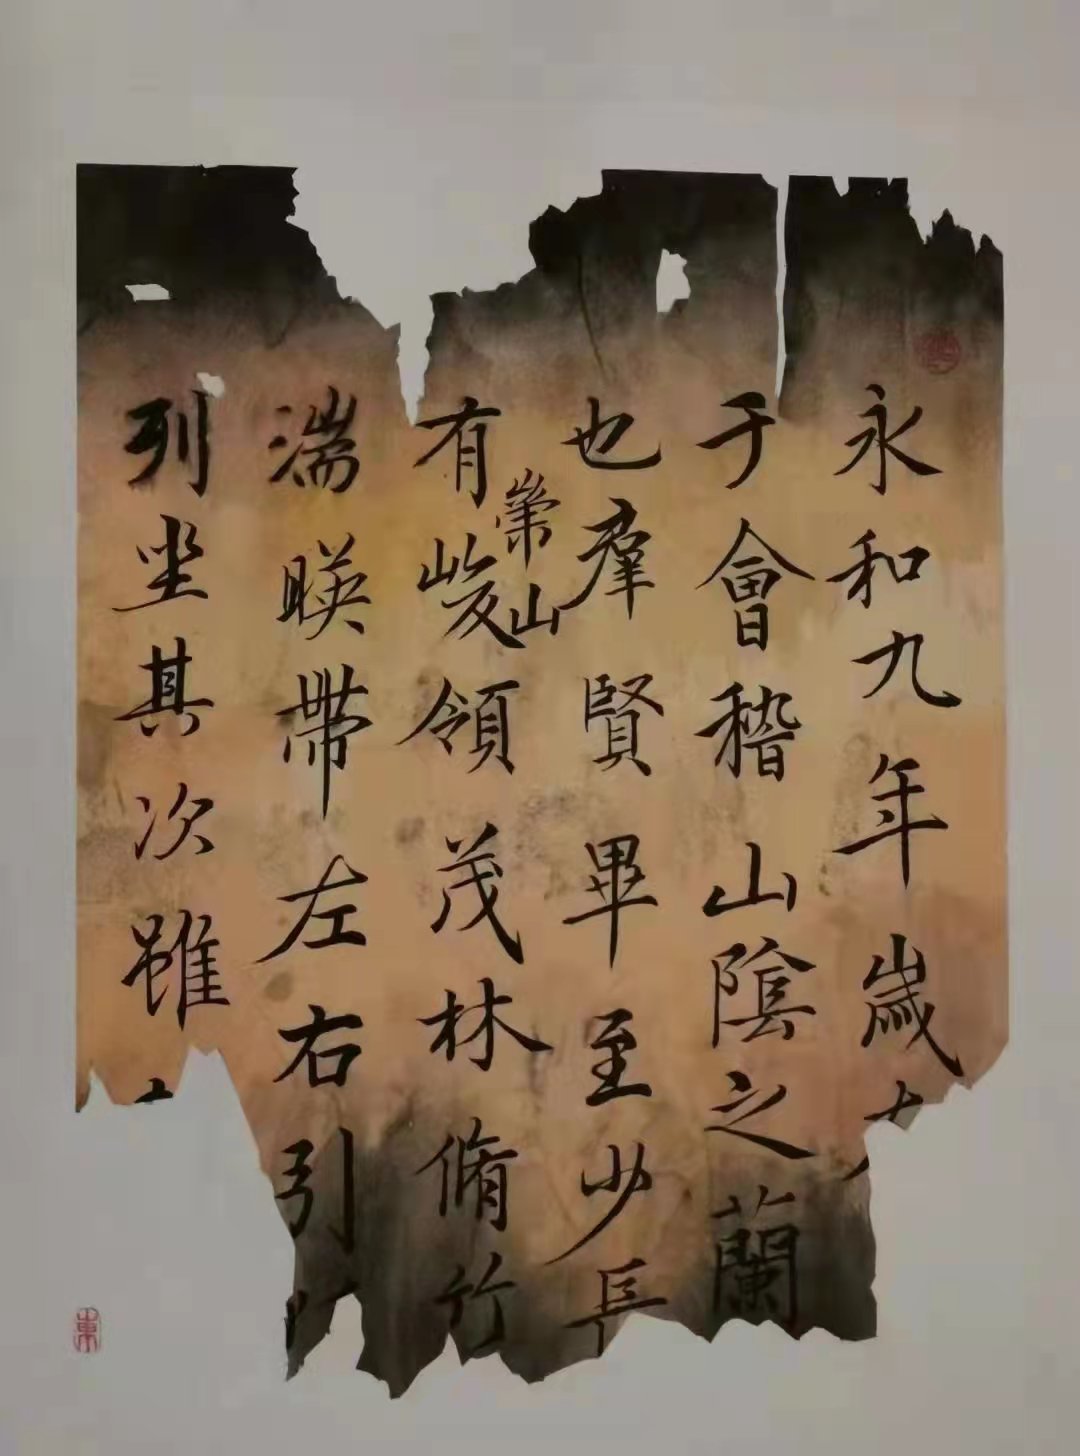 永和九年歲
于會稽山陰之蘭
也羣賢畢至少長
有崇山峻領茂林脩竹
湍暎帶左右引
列坐其次雖